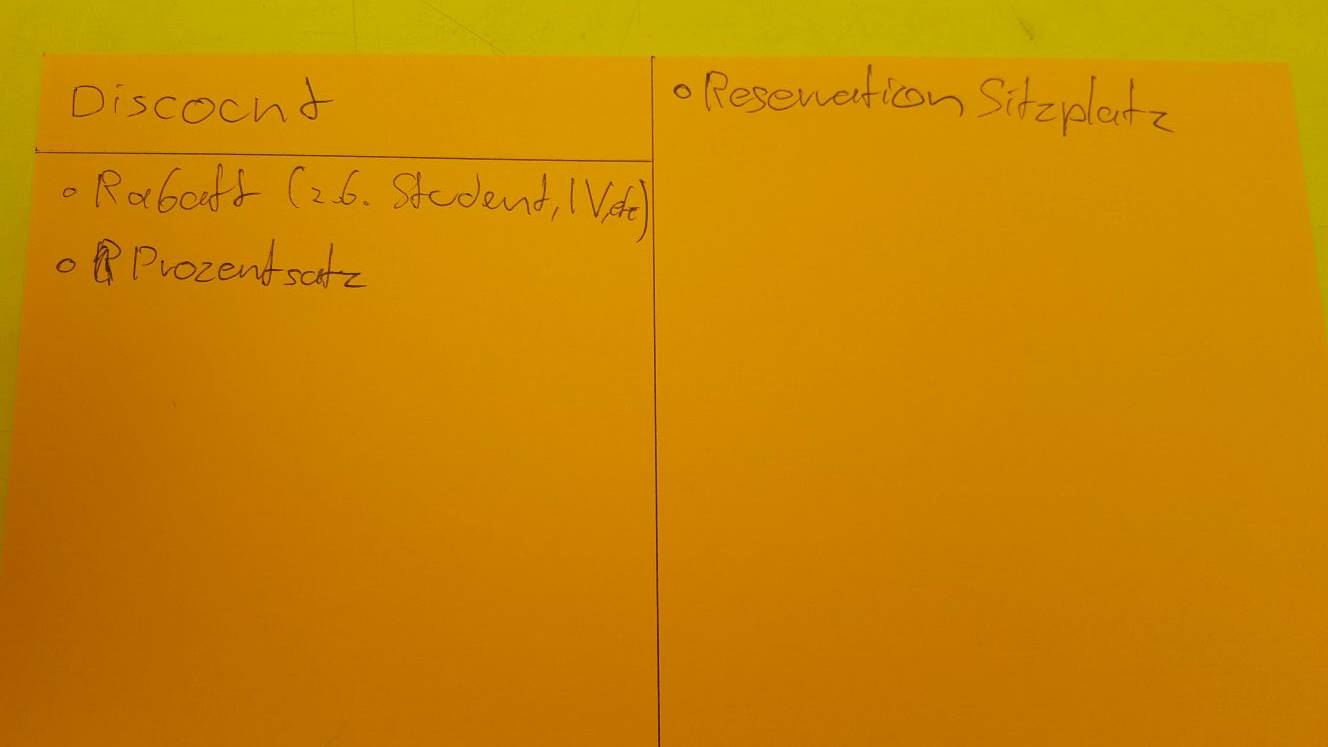 Discount
• Rabatt (z.B. Student, IV, etc)
• Prozentsatz
• Reservation Sitzplatz